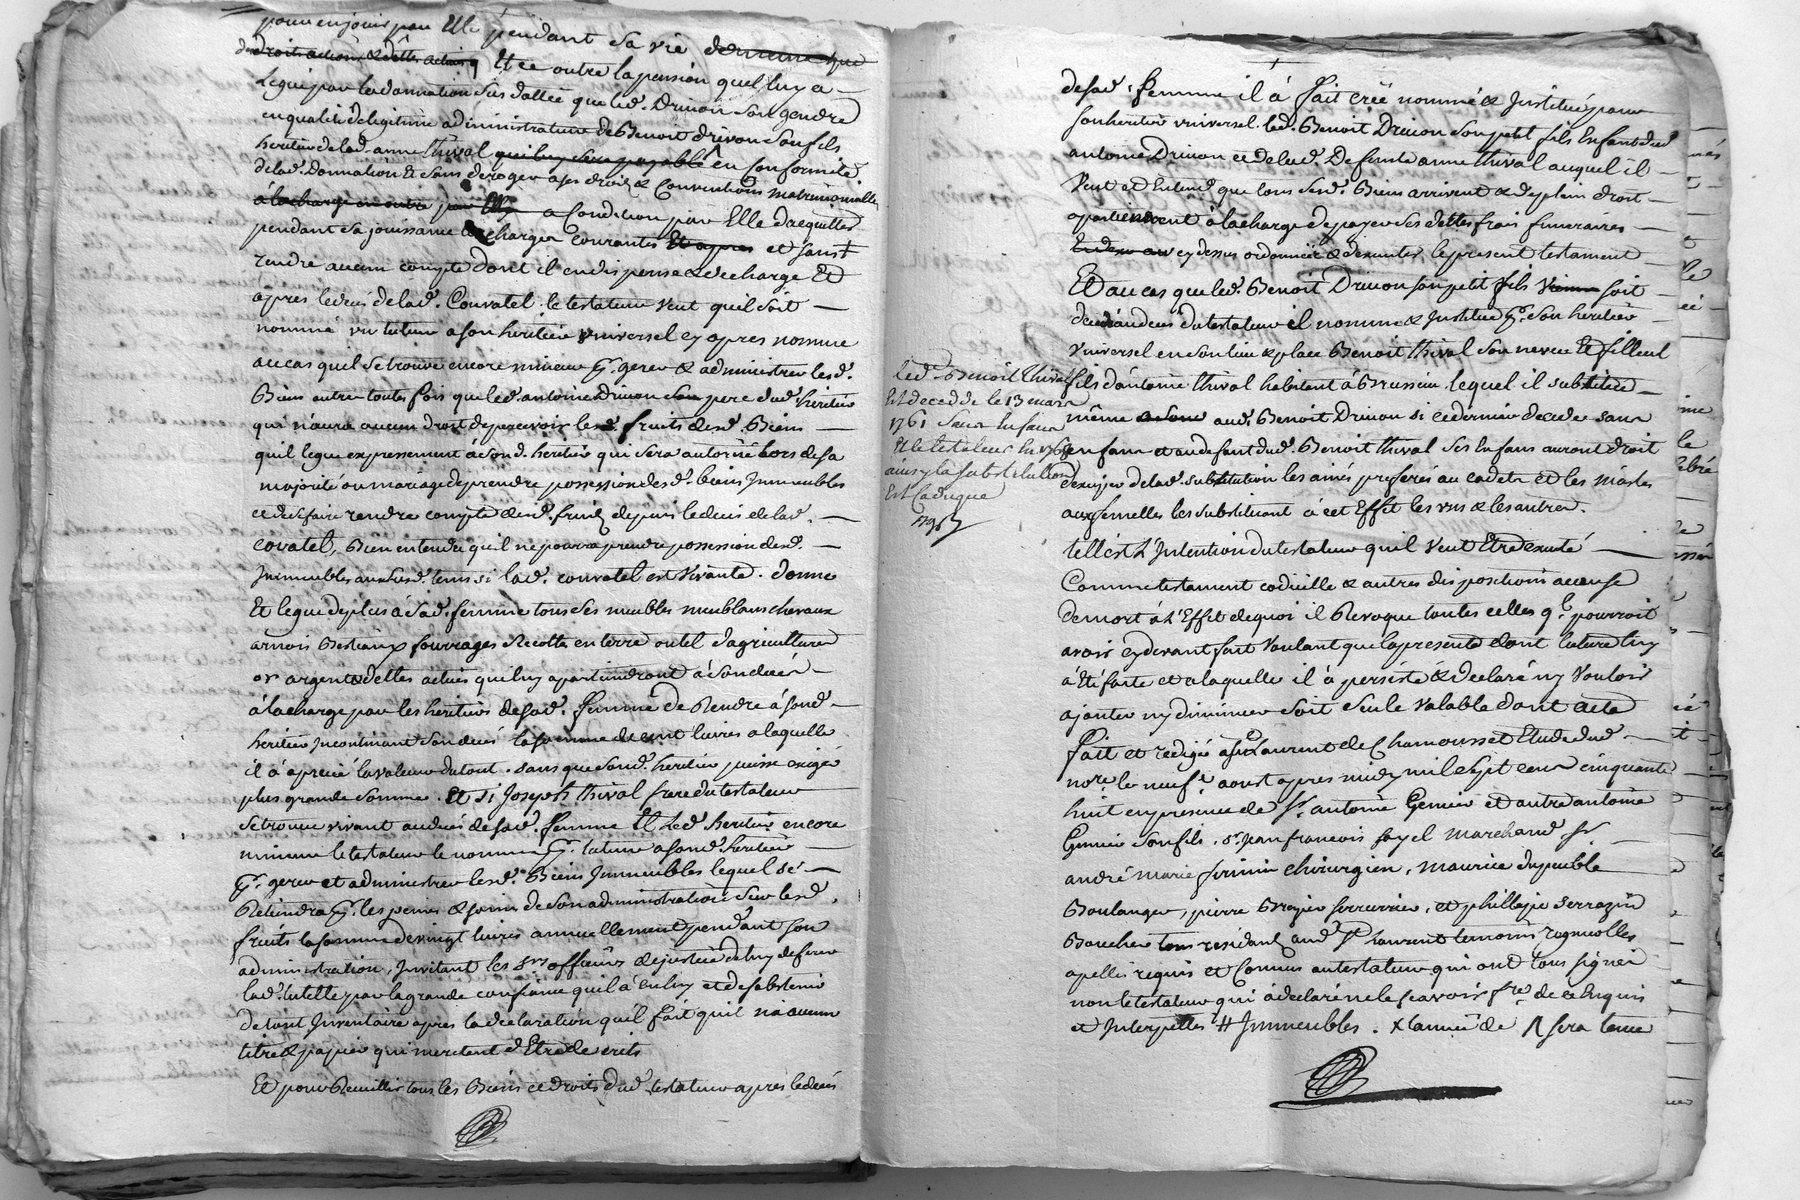 pour en jouir par Elle pendant sa vie de meme que
de droits actions & dettes actives Et ce outre la pension quel luy a
Legué par la donnation sus dattée que led. Drivon son gendre
en qualité de legitime administrateur de Benoit drivon son fils
heritier de lad. anne thival qui luy sera payable en Conformité
de lad. Donnation Et sans deroger a ses droits & Conventions matrimonialles
a la charge en outre par Elle a Condition par Elle dacquitter
pendant sa jouissance les charges courantes Et apres et sans
rendre aucun compte dont il en dispense & decharge Et
apres le deces de lad. Couvatel le testateur veut quil soit
nommé un tuteur a son heritier universel cy apres nommé
au cas quil se trouve encore mineur pr. gerer & administrer lesd.
Biens autre toutes fois que led. antoine Drivon son pere dud. heritier
qui n'aura aucun droit de percevoir lesd. fruits desd. Biens
quil legue expressement à sond. heritier qui sera autorisé hors de sa
majorité ou mariage de prendre possession desd. biens Immeubles
et de se faire rendre compte desd. fruits depuis le deces de lad.
covatel, Bien entendu qu'il ne pourra prendre possession desd.
Immeubles aud. tems si lad. couvatel est vivante. donne
Et legue de plus à sad. femme tous ses meubles meublans chevaux
arnois Bestiaux fourrages Recolte en terre outel d'agriculture
or argent & dettes actives qui luy apartiendront à son deces
à la charge par les heritiers de sad. femme de Rendre à sond.
heritier Incontinant son deces la somme de cent livres a laquelle
il à aprecié la valeur du tout. sans que sond. heritier puisse exiger
plus grande somme. Et si Joseph thival frere du testateur
se trouve vivant au deces de sad. femme Et led. heritier encore
mineur le testateur le nomme pr. tuteur a sond. heritier
pr. gerer et administrer lesd. Biens Immeubles lequel se
Retiendra pr. les peines & soins de son administration sur lesd.
fruits la somme de vingt livres annuellement pendant son
administration, Invitant les srs. officiers de justice de luy deferer
lad. tutelle par la grande confiance quil à en luy et de sabstenir
de tout Inventaire apres la declaration qu'il fait qu'il n'a aucun
titre & papier qui meritent d'Etre decrits
Et pour Recueillir tous les Biens et droits dud. testateur apres le deces
de sad. femme il à fait créé nommé & Institué pour
son heritier universel led. Benoit Drivon son petit fils Enfant dud.
antoine Drivon et de lad. Defunte anne thival auquel il
Veut et Entend que tous sesd. Biens arrivent & de plein droit
apartiennent à la charge de payer ses dettes frais funeraires
cy dessus ordonnée & dexecuter le present testament
Et au cas que led. Benoit Drivon son petit fils Vienne soit
decedé du testateur il nomme & Institue pr. son heritier
Universel en son lieu & place Benoit thival son neveu Et filleul
fils d'antoine thival habitant à Brussieu lequel il substitue
même aud. Benoit Drivon si ce dernier decede sans
enfans et au defaut dud. Benoit thival ses Enfans auront droit
de lad. substitution les ainés preferés au cadets et les mâles
aux femelles les substituant à cet Effet les uns & les autres.
tell'est L'Intention du testateur quil Veut Etre executé
Comme testament codicille & autres dispositions a cause
de mort à l'Effet de quoi il Revoque toutes celles ql. pourroit
avoir cy devant fait Voulant que la presente dont lecture luy
à été faite et a laquelle il à persisté & declaré ny Vouloir
ajouter ny diminuer soit seule Valable dont acte
fait et redigé a St. Laurent de Chamousset Etude dud.
nore. le neufe. aoust apres midy mil sept cens cinquante
huit en presence de sr. antoine Genier et autre antoine
Genier son fils, sr. jean francois fayel marchand, sr.
andré marie firmin chirurgien, maurice dupuble
Boulanger, pierre Brazier serrurier, et phillipe serrazin
Boucher tous residants aud. St. laurent temoins
apellés requis et Connus au testateur qui ont tous signés
non le testateur qui à declaré ne le scavoir fre. de ce Enquis
et Interpellés # Immeubles. x l'année de /\ sera tenue
Led. Benoit Thival
Est decedé le 13 mars
1761 sans Enfans
Et le testateur En 1768
ainsy la substitution
Est Caduque